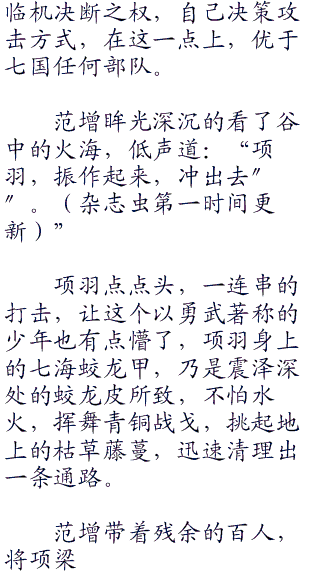 临机决断之权，自己决策攻
击方式，在这一点上，优于
七国任何部队。
范增眸光深沉的看了谷
中的火海，低声道：“项
羽，振作起来，冲出去〞
〞。（杂志虫第一时间更
新）”
项羽点点头，一连串的
打击，让这个以勇武著称的
少年也有点懵了，项羽身上
的七海蛟龙甲，乃是震泽深
处的蛟龙皮所致，不怕水
火，挥舞青铜战戈，挑起地
上的枯草藤蔓，迅速清理出
一条通路。
范增带着残余的百人，
将项梁